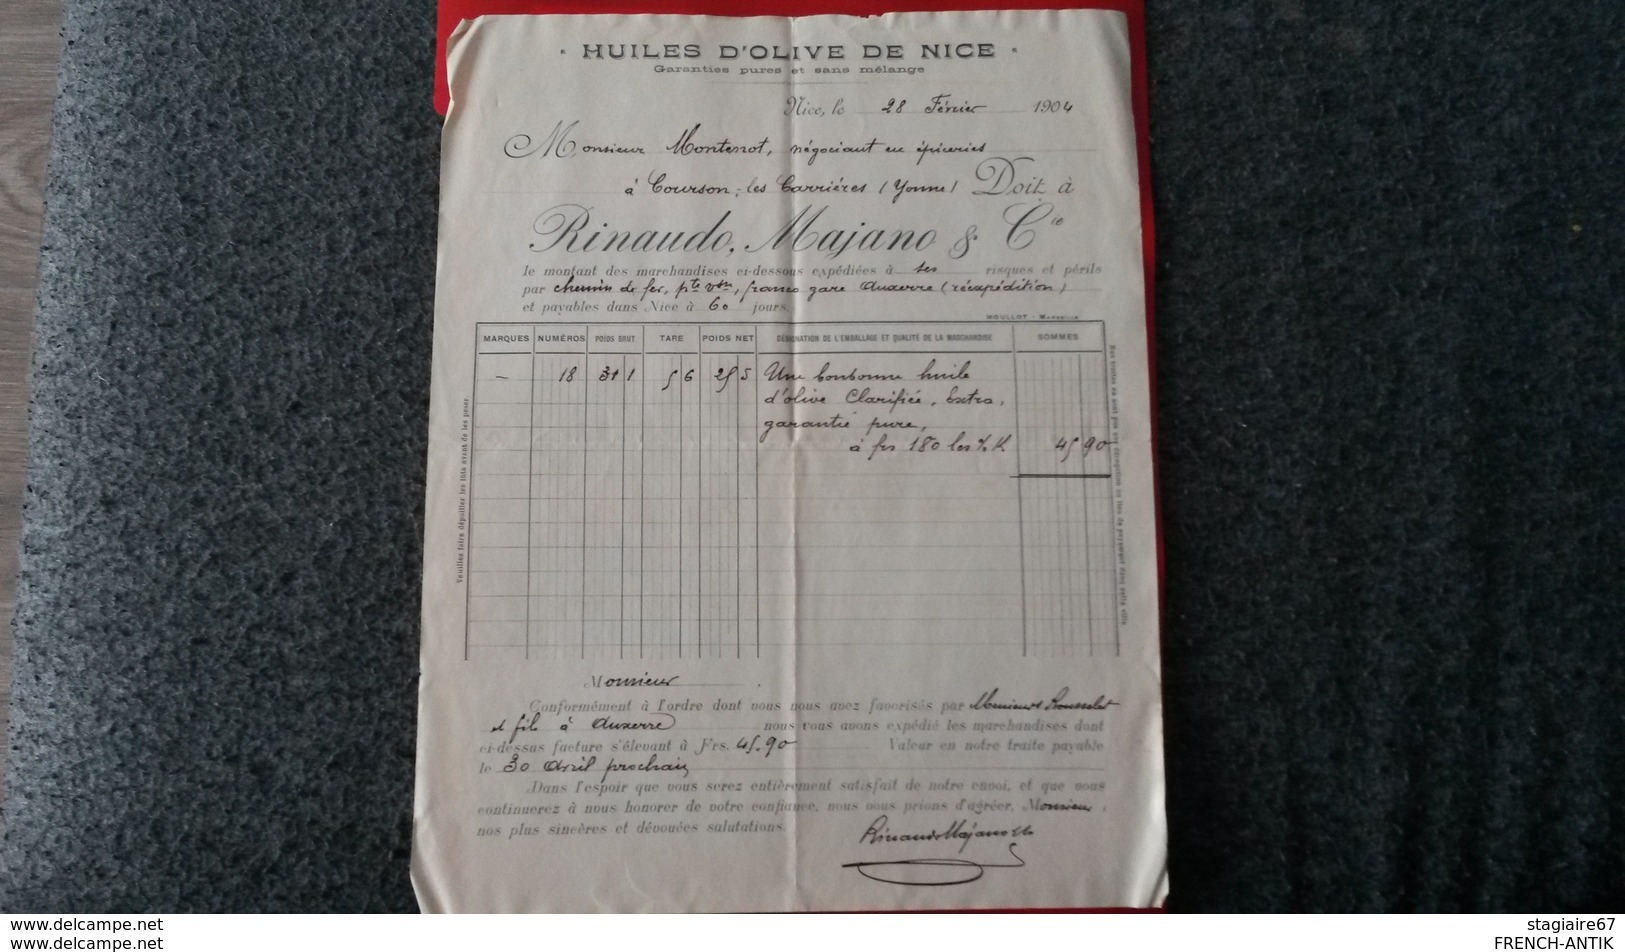 HUILES D'OLIVE DE NICE
Garanties pures et sans mélange
Nice, le 28 Février 1904
Monsieur Montenot, négociant en épiceries
à Courson-les Carrières (Yonne) Doit à
Rinaudo, Majano & Cie
le montant des marchandises ci-dessous expédiées à ses risques et périls
par chemin de fer, pte vtn, franco gare Auxerre (réexpédition)
et payables dans Nice à 60 jours.
MOULLOT - MARSEILLE
MARQUES NUMÉROS POIDS BRUT TARE POIDS NET DÉSIGNATION DE L'EMBALLAGE ET QUALITÉ DE LA MARCHANDISE SOMMES
— 18 31 1 5 6 25 5 Une bonbonne huile
d'olive Clarifiée, Extra,
garantie pure,
à frs 180 les % K 45 90
Veuillez faire dépouiller les fûts avant de les peser.
Nos traites ne sont pas une dérogation au lieu de payement dans notre ville
Monsieur
Conformément à l'ordre dont vous nous avez favorisés par Messieurs Rousselet
et fils à Auxerre nous vous avons expédié les marchandises dont
ci-dessus facture s'élevant à Frs. 45.90 Valeur en notre traite payable
le 30 Avril prochain
Dans l'espoir que vous serez entièrement satisfait de notre envoi, et que vous
continuerez à nous honorer de votre confiance, nous vous prions d'agréer, Monsieur,
nos plus sincères et dévouées salutations.
Rinaudo Majano & Cie
www.delcampe.net
www.delcampe.net
stagiaire67
FRENCH-ANTIK